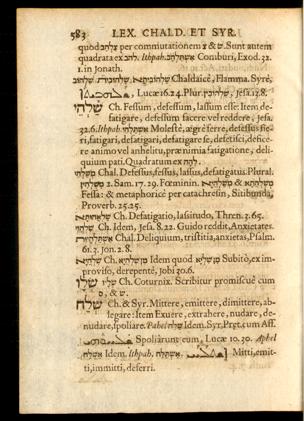 583 LEX. CHALD. ET SYR.
quod צלהב per commutationem צ & ש. Sunt autem
quadrata ex להב. Ithpah. אשתלהב Comburi, Exod. 32.
1. in Jonath.
Chaldaicè, Flamma. Syrè,
Lucæ 16.24. Plur. Jesa.13.8.
שלהי Ch. Fessum, defessum, lassum esse: Item de-
fatigare, defessum facere vel reddere, Jesa.
32.6. Ithpah. אשתלהי Molestè, ægrè ferre, defessus fie-
ri, fatigari, defatigari, defatigare se, defetisci, defice-
re animo vel anhelitu, præ nimia fatigatione, deli-
quium pati. Quadratum ex להה.
Chal. Defessus, fessus, lassus, defatigatus. Plural.
2. Sam. 17. 29. Fœminin. &
Fessa: & metaphoricè per catachresin, Sitibunda,
Proverb. 25.25.
Ch. Defatigatio, lassitudo, Thren. 3. 65.
Ch. Idem, Jesa. 8. 22. Guido reddit, Anxietates.
Chal. Deliquium, tristitia, anxietas, Psalm.
61.3. Jon. 2.8.
Ch. Idem quod Subitò, ex im-
proviso, derepentè, Jobi 30.6.
שלו Ch. Coturnix. Scribitur promiscuè cum
ש, & ס.
שלח Ch. & Syr. Mittere, emittere, dimittere, ab-
legare: Item Exuere, extrahere, nudare, de-
nudare, spoliare. Pahel שלח Idem. Syr. Præt. cum Aff.
Spoliârunt eum, Lucæ 10. 30. Aphel
אשלח Idem. Ithpah. אשתלח Mitti, emit-
ti, immitti, deferri.